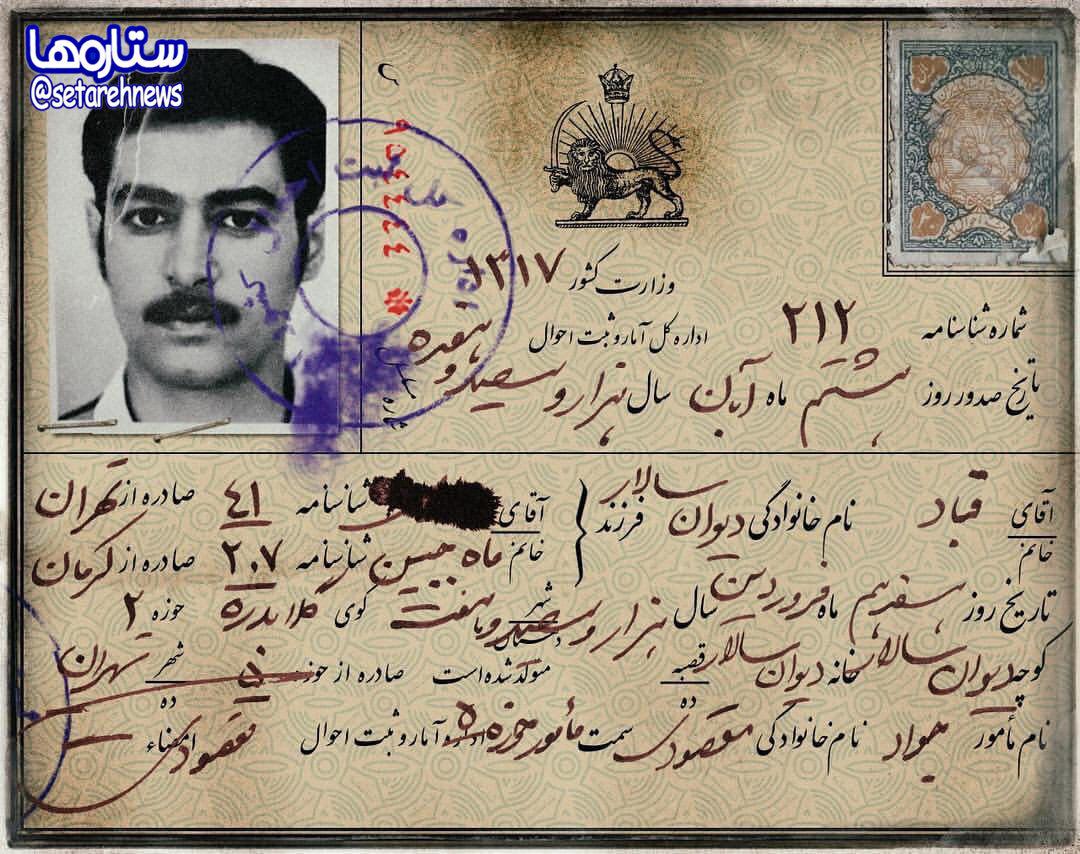 ستاره‌ها
@setarehnews
وزارت کشور ۱۳۱۷
اداره کل آمار و ثبت احوال
شماره شناسنامه ۲۱۲
تاریخ صدور روز هشتم ماه آبان سال هزار و سیصد و هفده
آقای خانم قباد نام خانوادگی دیوان سالار فرزند
آقای شناسنامه ٤۱ صادره از تهران
خانم ماه جبین شناسنامه ۲۰۷ صادره از کرمان
تاریخ روز هفدهم ماه فروردین سال هزار و سیصد و هفت کوی حوزه ۲
کوچه دیوان سالار خانه دیوان سالار قصبه ده متولد شده است صادره از حوزه ۵ شهر ده تهران
نام مأمور جواد نام خانوادگی مقصودی سمت مأمور حوزه ۵ اداره آمار و ثبت احوال امضاء مقصودی